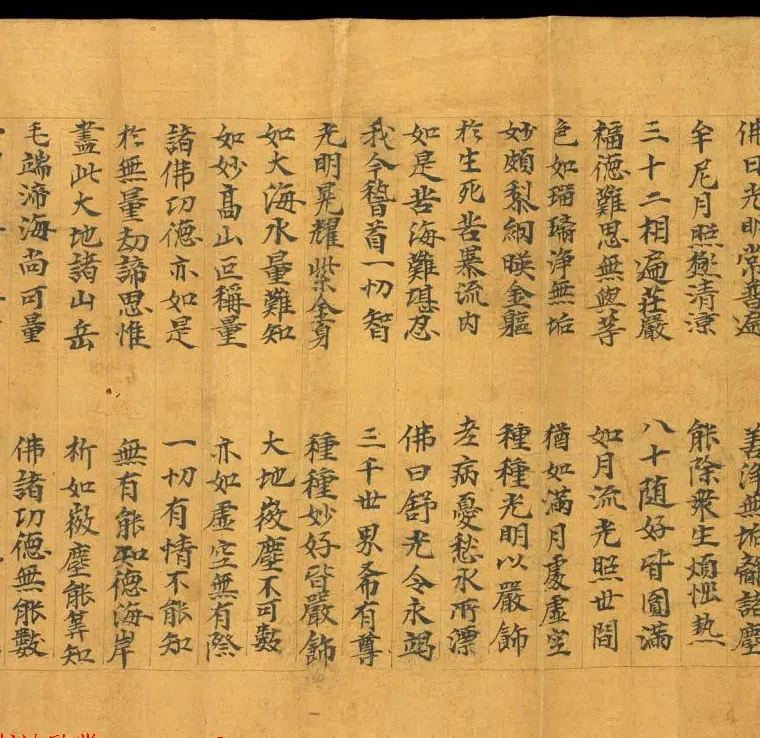 佛日光明常普遍 善淨無垢離諸塵
牟尼月照極清涼 能除衆生煩惱熱
三十二相遍莊嚴 八十随好皆圓滿
福德難思無與等 如月流光照世間
色如瑠璃淨無垢 猶如滿月處虛空
妙頗棃網暎金軀 種種光明以嚴飾
於生死苦暴流内 老病憂愁水所漂
如是苦海難堪忍 佛日舒光令永竭
我今稽首一切智 三千世界希有尊
光明晃耀紫金身 種種妙好皆嚴飾
如大海水量難知 大地微塵不可數
如妙高山叵稱量 亦如虛空無有際
諸佛功德亦如是 一切有情不能知
於無量劫諦思惟 無有能知德海岸
盡此大地諸山岳 析如微塵能筭知
毛端渧海尚可量 佛諸功德無能數